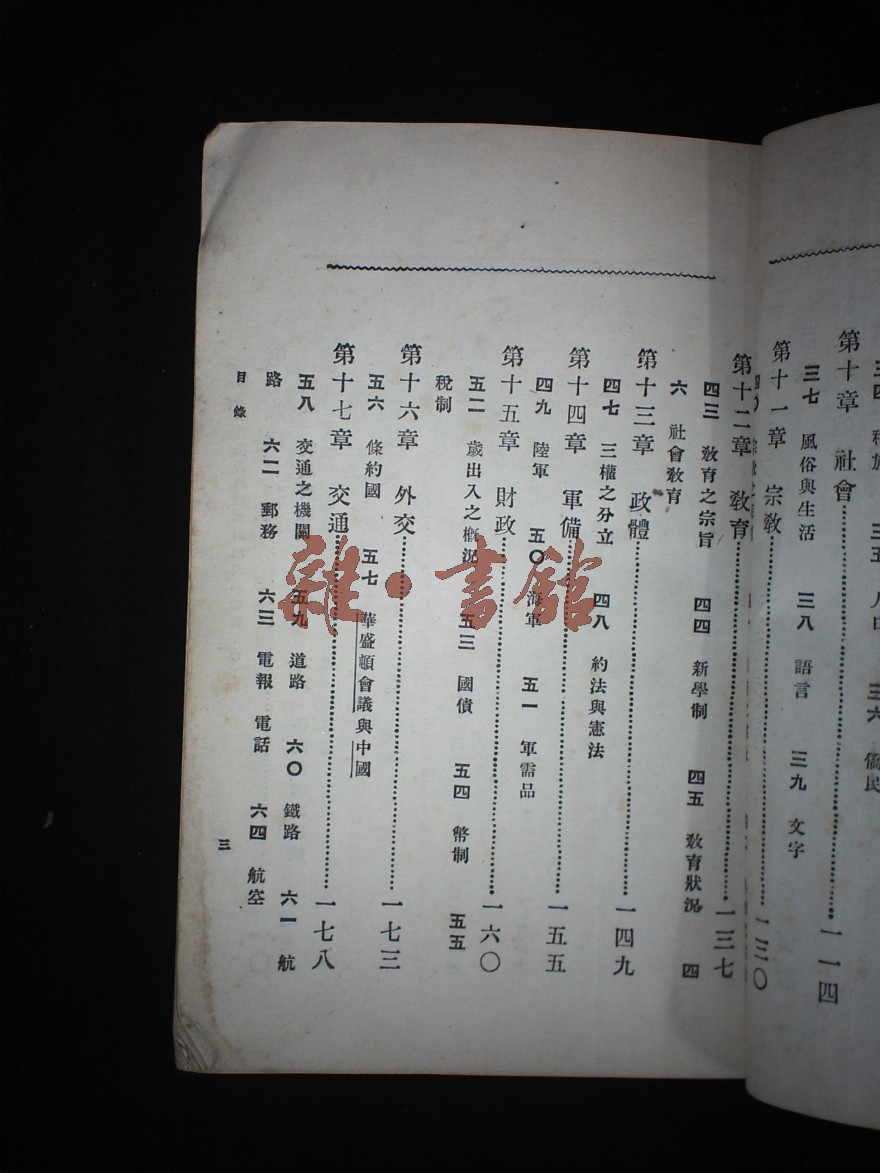 三五
三六
僑民
第十章 社會……一一四
三七 風俗與生活 三八 語言 三九 文字
第十一章 宗教……一三〇
第十二章 教育……一三七
四三 教育之宗旨 四四 新學制 四五 教育狀況 四
六 社會教育
第十三章 政體……一四九
四七 三權之分立 四八 約法與憲法
第十四章 軍備……一五五
四九 陸軍 五〇 海軍 五一 軍需品
第十五章 財政……一六〇
五二 歲出入之概況 五三 國債 五四 幣制 五五
稅制
第十六章 外交……一七三
五六 條約國 五七 華盛頓會議與中國
第十七章 交通……一七八
五八 交通之機關 五九 道路 六〇 鐵路 六一 航
路 六二 郵務 六三 電報 電話 六四 航空
目錄
三
雜·書館